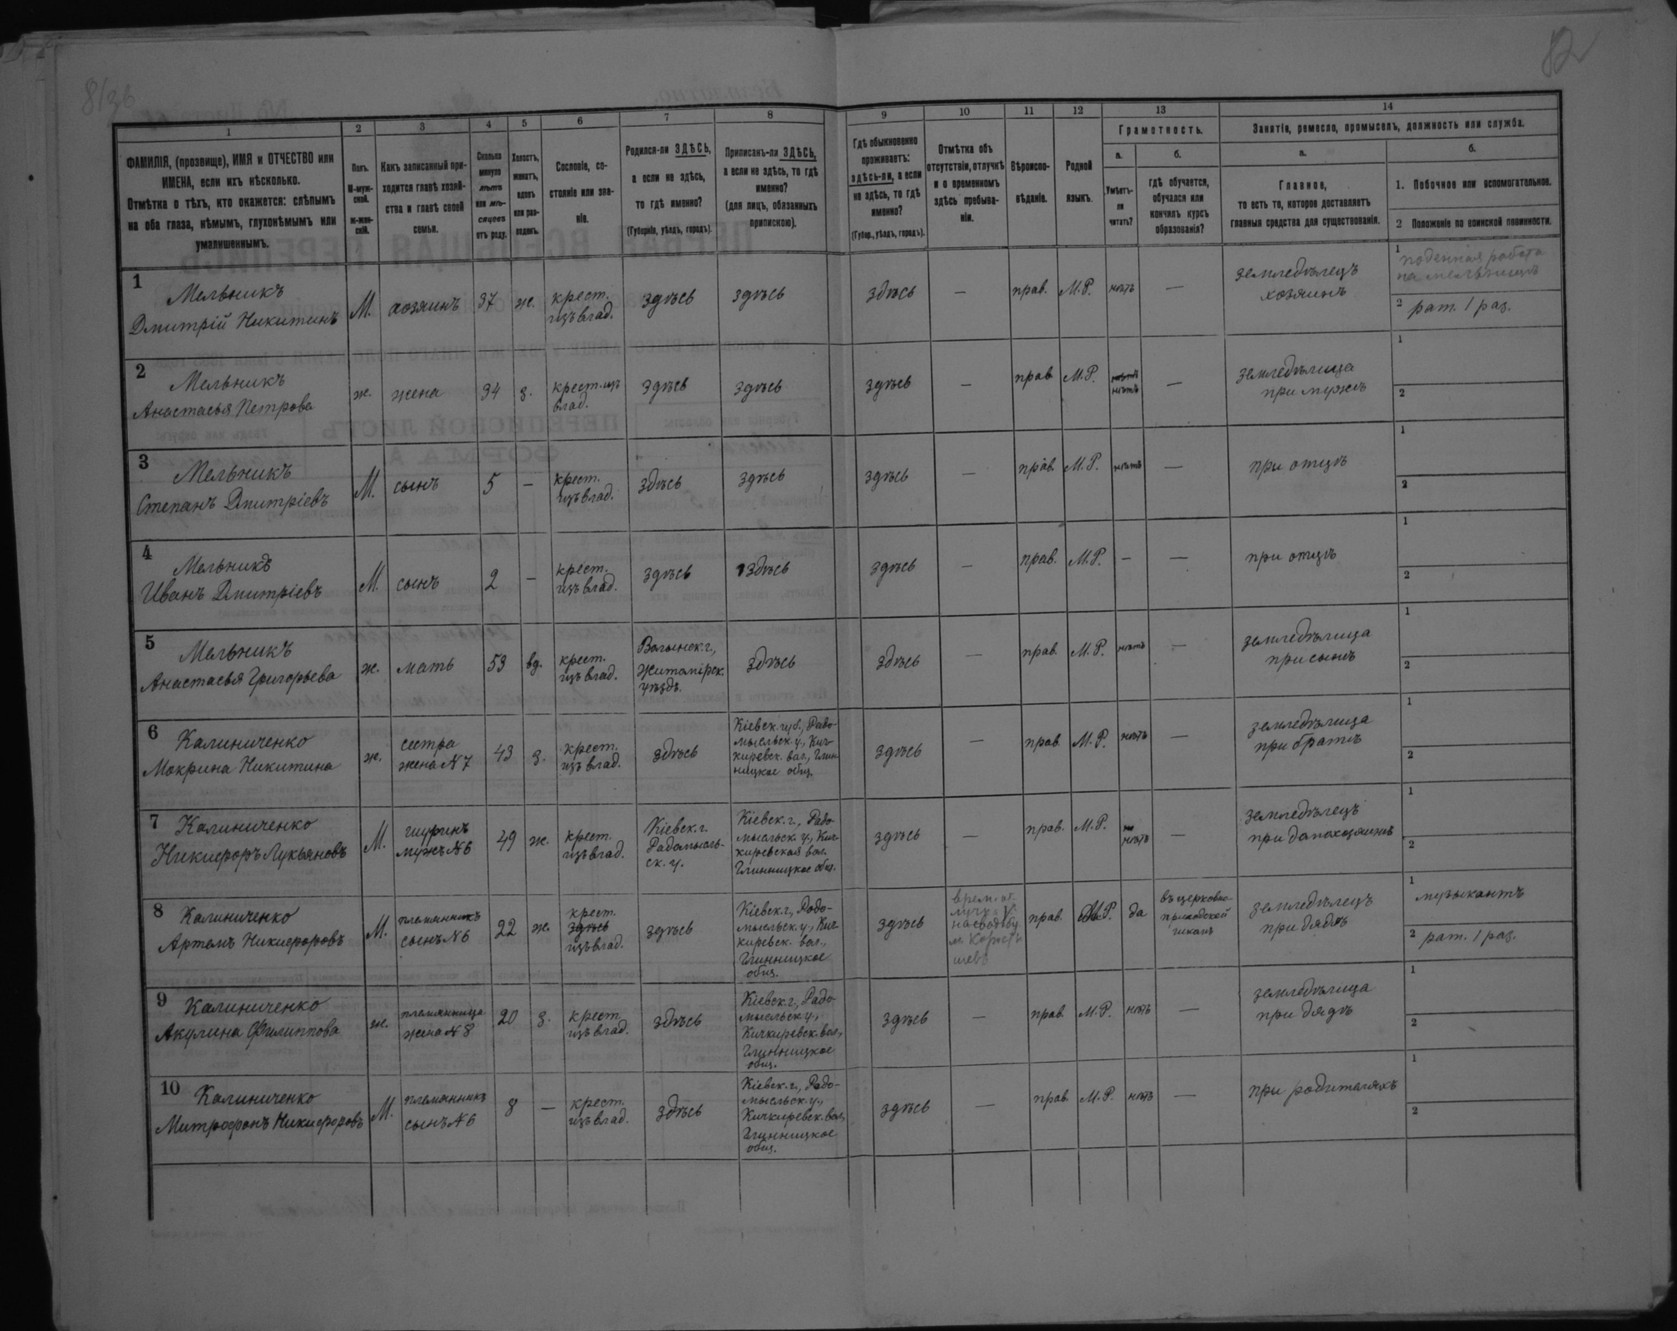 8/36
82
1 2 3 4 5 6 7 8 9 10 11 12 13 14
ФАМИЛІЯ, (прозвище), ИМЯ и ОТЧЕСТВО или
ИМЕНА, если ихъ нѣсколько.
Отмѣтка о тѣхъ, кто окажется: слѣпымъ
на оба глаза, нѣмымъ, глухонѣмымъ или
умалишеннымъ.
Полъ.
М-муж-
ской.
Ж-жен-
скій.
Какъ записанный при-
ходится главѣ хозяй-
ства и главѣ своей
семьи.
Сколько
минуло
лѣтъ
или мѣ-
сяцевъ
отъ роду.
Холостъ,
женатъ,
вдовъ
или раз-
веденъ.
Сословіе, со-
стояніе или зва-
ніе.
Родился-ли ЗДѢСЬ,
а если не здѣсь,
то гдѣ именно?
(Губернія, уѣздъ, городъ).
Приписанъ-ли ЗДѢСЬ,
а если не здѣсь, то гдѣ
именно?
(для лицъ, обязанныхъ
припискою).
Гдѣ обыкновенно
проживаетъ:
здѣсь-ли, а если
не здѣсь, то гдѣ
именно?
(Губер., уѣздъ, городъ).
Отмѣтка объ
отсутствіи, отлучкѣ
и о временномъ
здѣсь пребыва-
ніи.
Вѣроиспо-
вѣданіе.
Родной
языкъ.
Грамотность.
а.
Умѣетъ-
ли
читать?
б.
гдѣ обучается,
обучался или
кончилъ курсъ
образованія?
Занятія, ремесло, промыселъ, должность или служба.
а.
Главное,
то есть то, которое доставляетъ
главныя средства для существованія.
б.
1. Побочное или вспомогательное.
2 Положеніе по воинской повинности.
1
Мельникъ
Дмитрій Никитинъ
М. хозяинъ 37 ж.
крест.
изъ влад.
здѣсь здѣсь здѣсь — прав. М.Р. нѣтъ —
земледѣлецъ
хозяинъ
1 поденная работа
на мельницѣ
2 рат. 1 раз.
2
Мельникъ
Анастасья Петрова
ж. жена 34 з.
крест. изъ
влад.
здѣсь здѣсь здѣсь — прав. М.Р.
нѣтъ —
земледѣлица
при мужѣ
1
2
3
Мельникъ
Степанъ Дмитріевъ
М. сынъ 5 —
крест.
изъ влад.
здѣсь здѣсь здѣсь — прав. М.Р. нѣтъ —
при отцѣ
1
2
4
Мельникъ
Иванъ Дмитріевъ
М. сынъ 2 —
крест.
изъ влад.
здѣсь здѣсь здѣсь — прав. М.Р. — —
при отцѣ
1
2
5
Мельникъ
Анастасья Григорьева
ж. мать 53 вд.
крест.
изъ влад.
Волынск. г.,
Житомірск.
уѣздъ.
здѣсь здѣсь — прав. М.Р. нѣтъ —
земледѣлица
при сынѣ
1
2
6
Калиниченко
Мокрина Никитина
ж.
сестра
жена N 7
43 з.
крест.
изъ влад.
здѣсь
Кіевск. губ., Радо-
мысльск. у., Кич-
киревск. вол., Глин-
ницкое общ.
здѣсь — прав. М.Р. нѣтъ —
земледѣлица
при братѣ
1
2
7
Калиниченко
Никифоръ Лукьяновъ
М.
шуринъ
мужъ N 6
49 ж.
крест.
изъ влад.
Кіевск. г.
Радомысль-
ск. у.
Кіевск. г., Радо-
мысльск. у., Кич-
киревской вол.
Глинницкое общ.
здѣсь — прав. М.Р.
нѣтъ —
земледѣлецъ
при
1
2
8
Калиниченко
Артемъ Никифоровъ
М.
племянникъ
сынъ N 6
22 ж.
крест.
здѣсь
изъ влад.
здѣсь
Кіевск. г., Радо-
мысльск. у., Кич-
киревск. вол.,
Глинницкое
общ.
здѣсь
врем. от-
лучка
на свадьбу
м. Корост-
шевъ
прав. М.Р. да
въ церковно-
приходской
школѣ
земледѣлецъ
при дядѣ
1 музыкантъ
2 рат. 1 раз.
9
Калиниченко
Акулина Филиппова
ж.
племянница
жена N 8
20 з.
крест.
изъ влад.
здѣсь
Кіевск. г., Радо-
мысльск. у.,
Кичкиревск. вол.,
Глинницкое
общ.
здѣсь — прав. М.Р. нѣтъ —
земледѣлица
при дядѣ
1
2
10
Калиниченко
Митрофанъ Никифоровъ
М.
племянникъ
сынъ N 6
8 —
крест.
изъ влад.
здѣсь
Кіевск. г., Радо-
мысльск. у.,
Кичкиревск. вол.,
Глинницкое
общ.
здѣсь — прав. М.Р. нѣтъ —
при родителяхъ
1
2